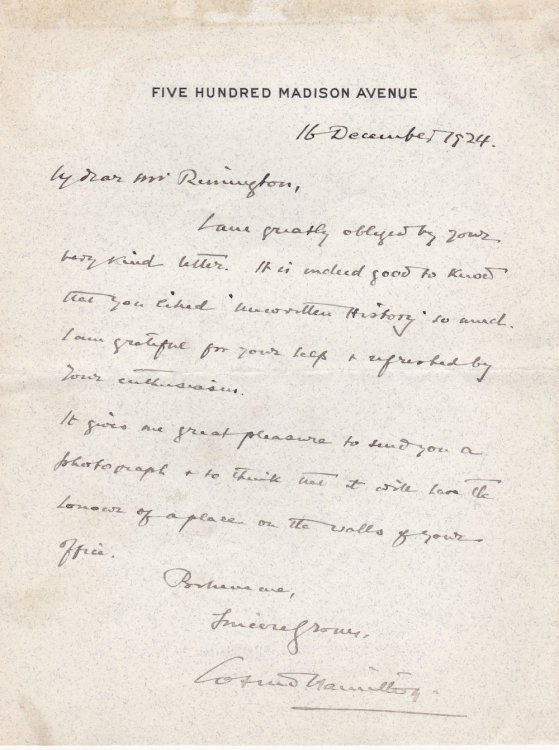 FIVE HUNDRED MADISON AVENUE
16 December 1924.
My dear Mr Rimington,
I am greatly obliged by your
very kind letter. It is indeed good to know
that you liked 'Unwritten History' so much.
I am grateful for your help + refreshed by
your enthusiasm.
It gives me great pleasure to send you a
photograph + to think that it will have the
honour of a place on the walls of your
office.
Believe me,
Sincerely yours,
Cosmo Hamilton.